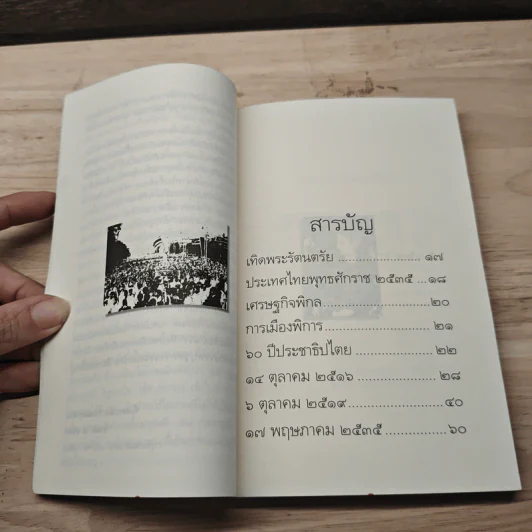 สารบัญ
เทิดพระรัตนตรัย ........................ ๑๗
ประเทศไทยพุทธศักราช ๒๕๓๕ ...๑๘
เศรษฐกิจพิกล..............................๒๐
การเมืองพิการ............................. ๒๑
๖๐ ปีประชาธิปไตย ..................... ๒๒
๑๔ ตุลาคม ๒๕๑๖ ..................... ๒๘
๖ ตุลาคม ๒๕๑๙..........................๔๐
๑๗ พฤษภาคม ๒๕๓๕ ................๖๐